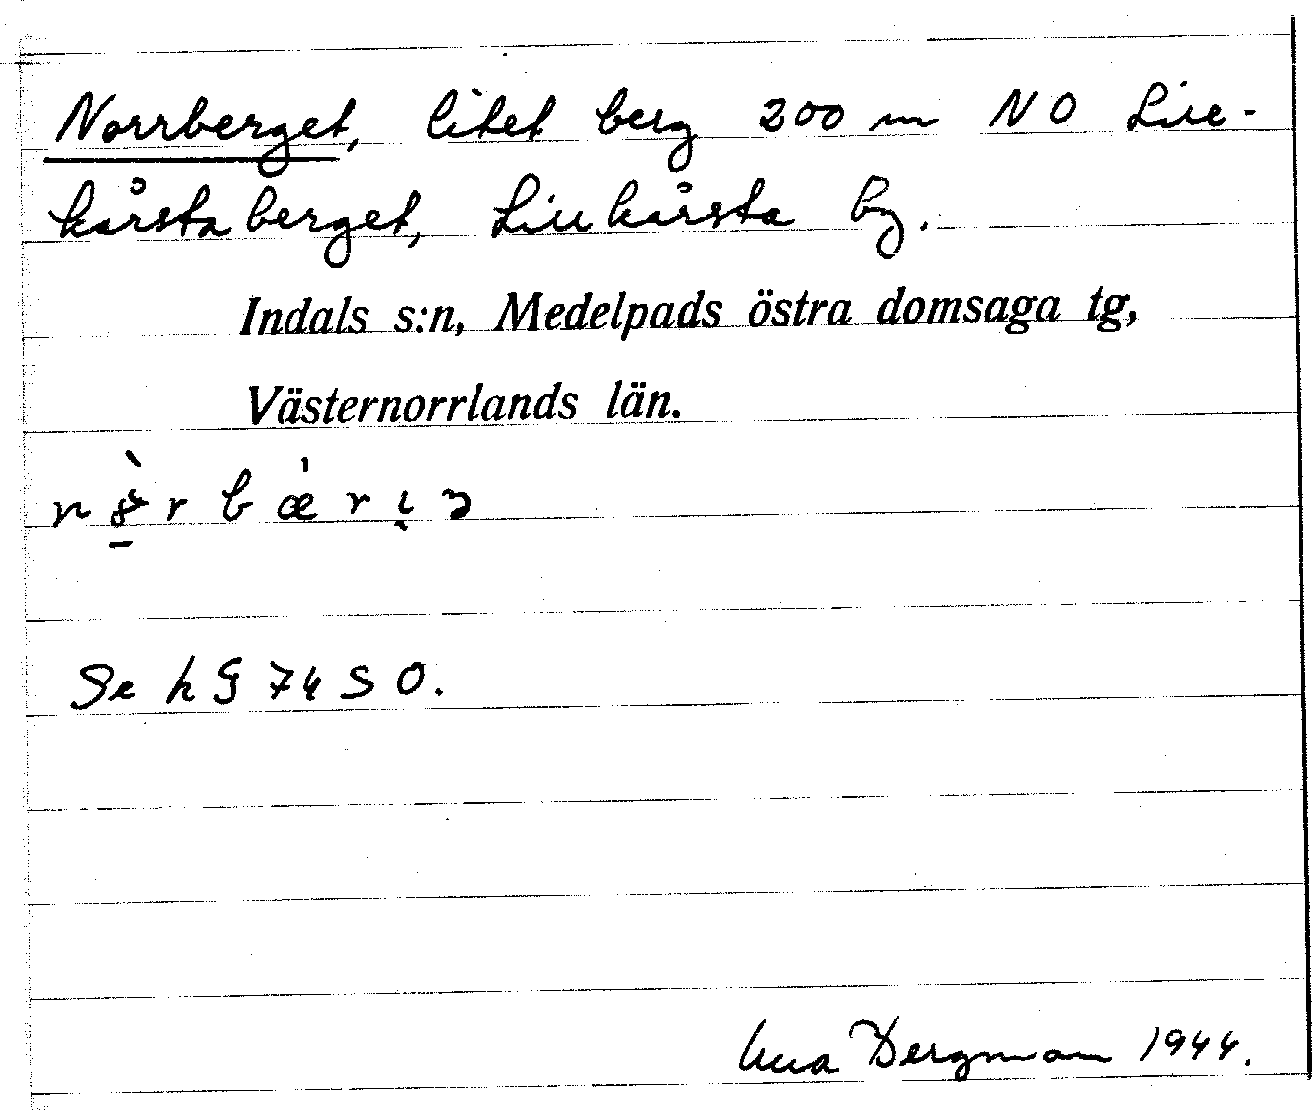 Norrberget, litet berg 200 m NO Lill-
kårstaberget, Lillkårsta by.
Indals s:n, Medelpads östra domsaga tg,
Västernorrlands län.
Se h § 74 S O.
Bergman 1944.